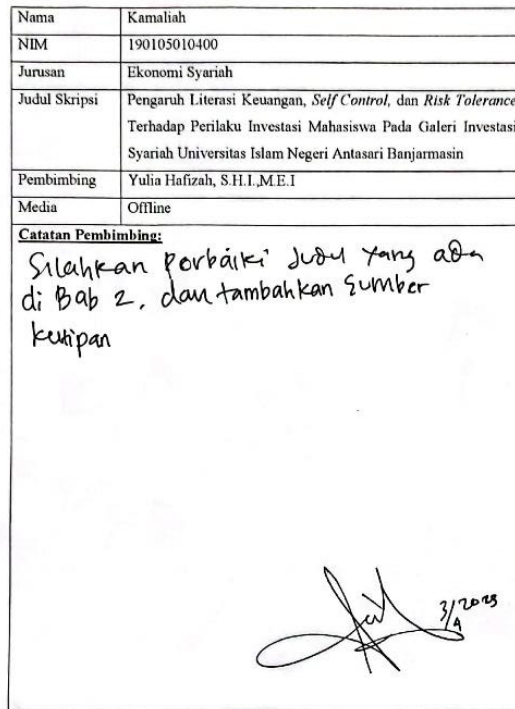 Nama Kamaliah
NIM 190105010400
Jurusan Ekonomi Syariah
Judul Skripsi Pengaruh Literasi Keuangan, Self Control, dan Risk Tolerance
Terhadap Perilaku Investasi Mahasiswa Pada Galeri Investasi
Syariah Universitas Islam Negeri Antasari Banjarmasin
Pembimbing Yulia Hafizah, S.H.I.,M.E.I
Media Offline
Catatan Pembimbing:
Silahkan Perbaiki Judul Yang ada
di Bab 2, dan tambahkan Sumber
kutipan
3/4 2023